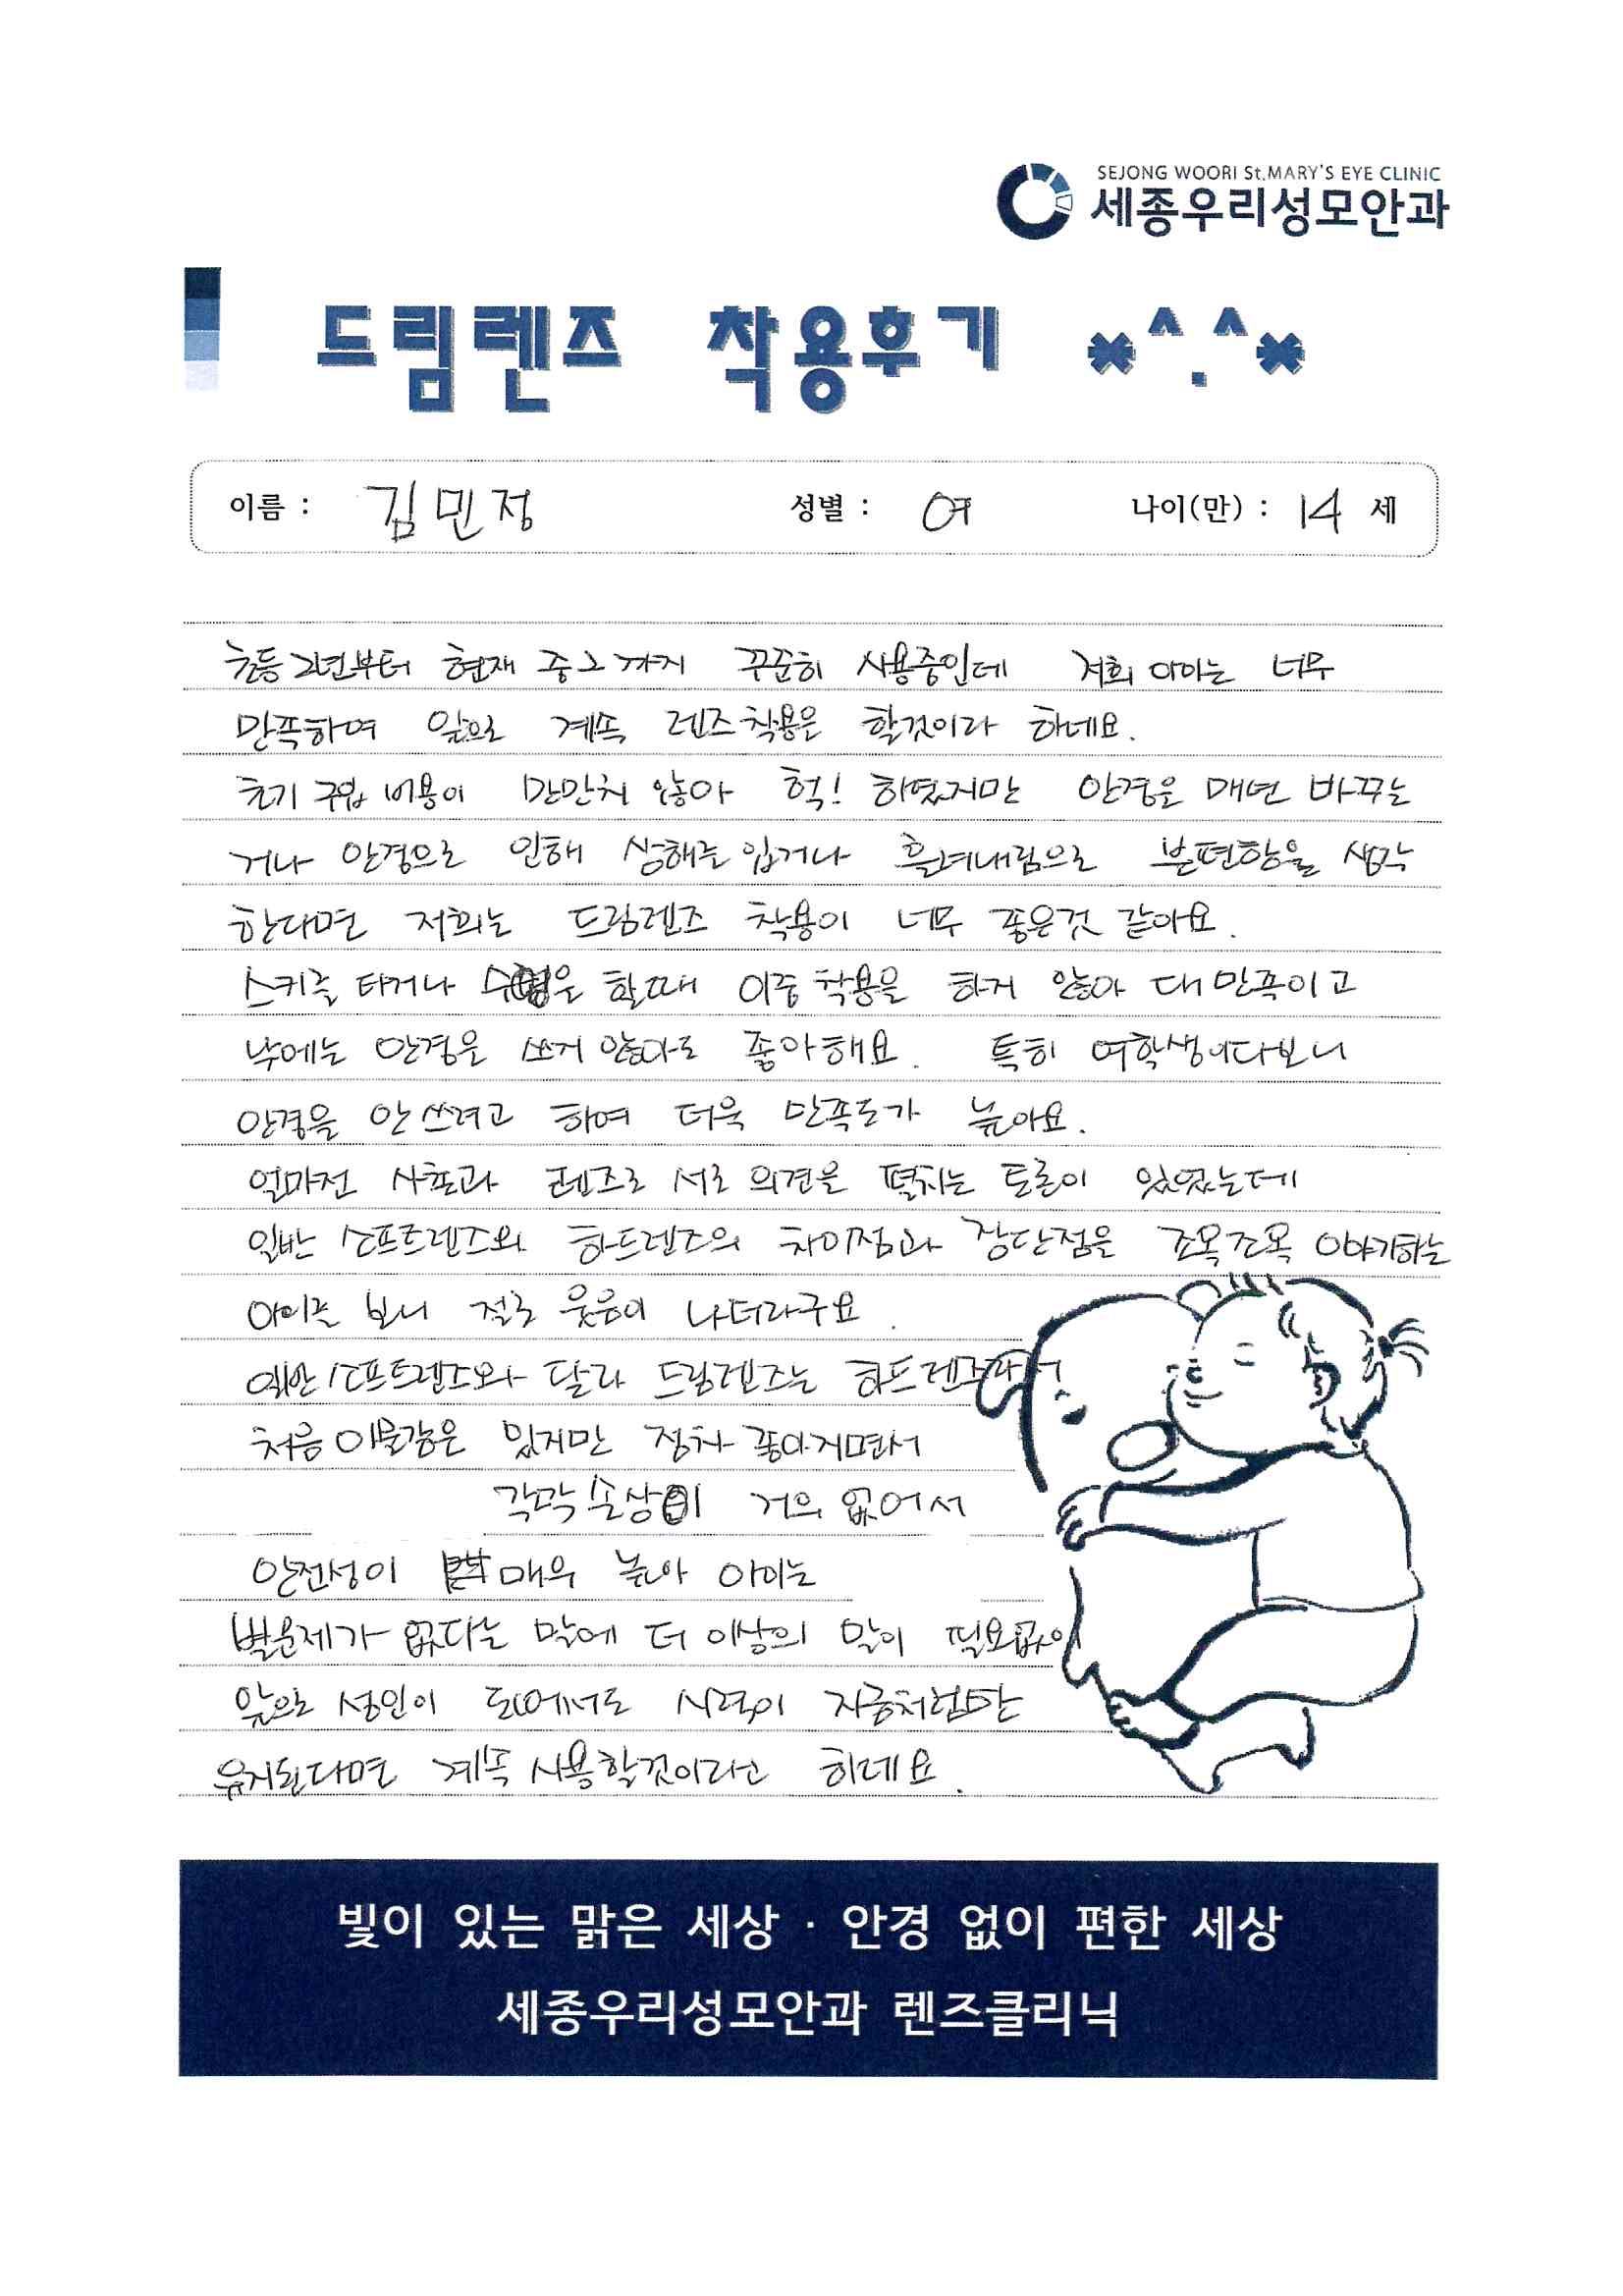 SEJONG WOORI St.MARY'S EYE CLINIC
세종우리성모안과
드림렌즈 착용후기 *^.^*
이름 : 김민정 성별 : 여 나이(만) : 14 세
초등 2년부터 현재 중2까지 꾸준히 사용중인데 저희 아이는 너무
만족하며 앞으로 계속 렌즈착용은 할것이라 하네요.
초기 구입 비용이 만만치 않아 헉! 하였지만 안경을 매년 바꾸는
거나 안경으로 인해 상해를 입거나 흘러내림으로 불편함을 생각
한다면 저희는 드림렌즈 착용이 너무 좋은것 같아요.
스키를 타거나 수영을 할때 이중착용을 하지 않아 대만족이고
낮에는 안경을 쓰지 않아도 좋아해요. 특히 여학생이다보니
안경을 안쓰려고 하여 더욱 만족도가 높아요.
얼마전 사촌과 렌즈로 서로 의견을 펼치는 토론이 있었는데
일반 소프트렌즈와 하드렌즈의 차이점과 장단점을 조목조목 이야기하는
아이를 보니 절로 웃음이 나더라구요.
일반 소프트렌즈와 달라 드림렌즈는 하드렌즈라서
처음 이물감은 있지만 점차 좋아지면서
각막손상이 거의 없어서
안전성이 매우 높아 아이는
별문제가 없다는 말에 더 이상의 말이 필요없이
앞으로 성인이 되어서도 시력이 지금처럼만
유지된다면 계속 사용할것이라고 하네요.
빛이 있는 맑은 세상 · 안경 없이 편한 세상
세종우리성모안과 렌즈클리닉